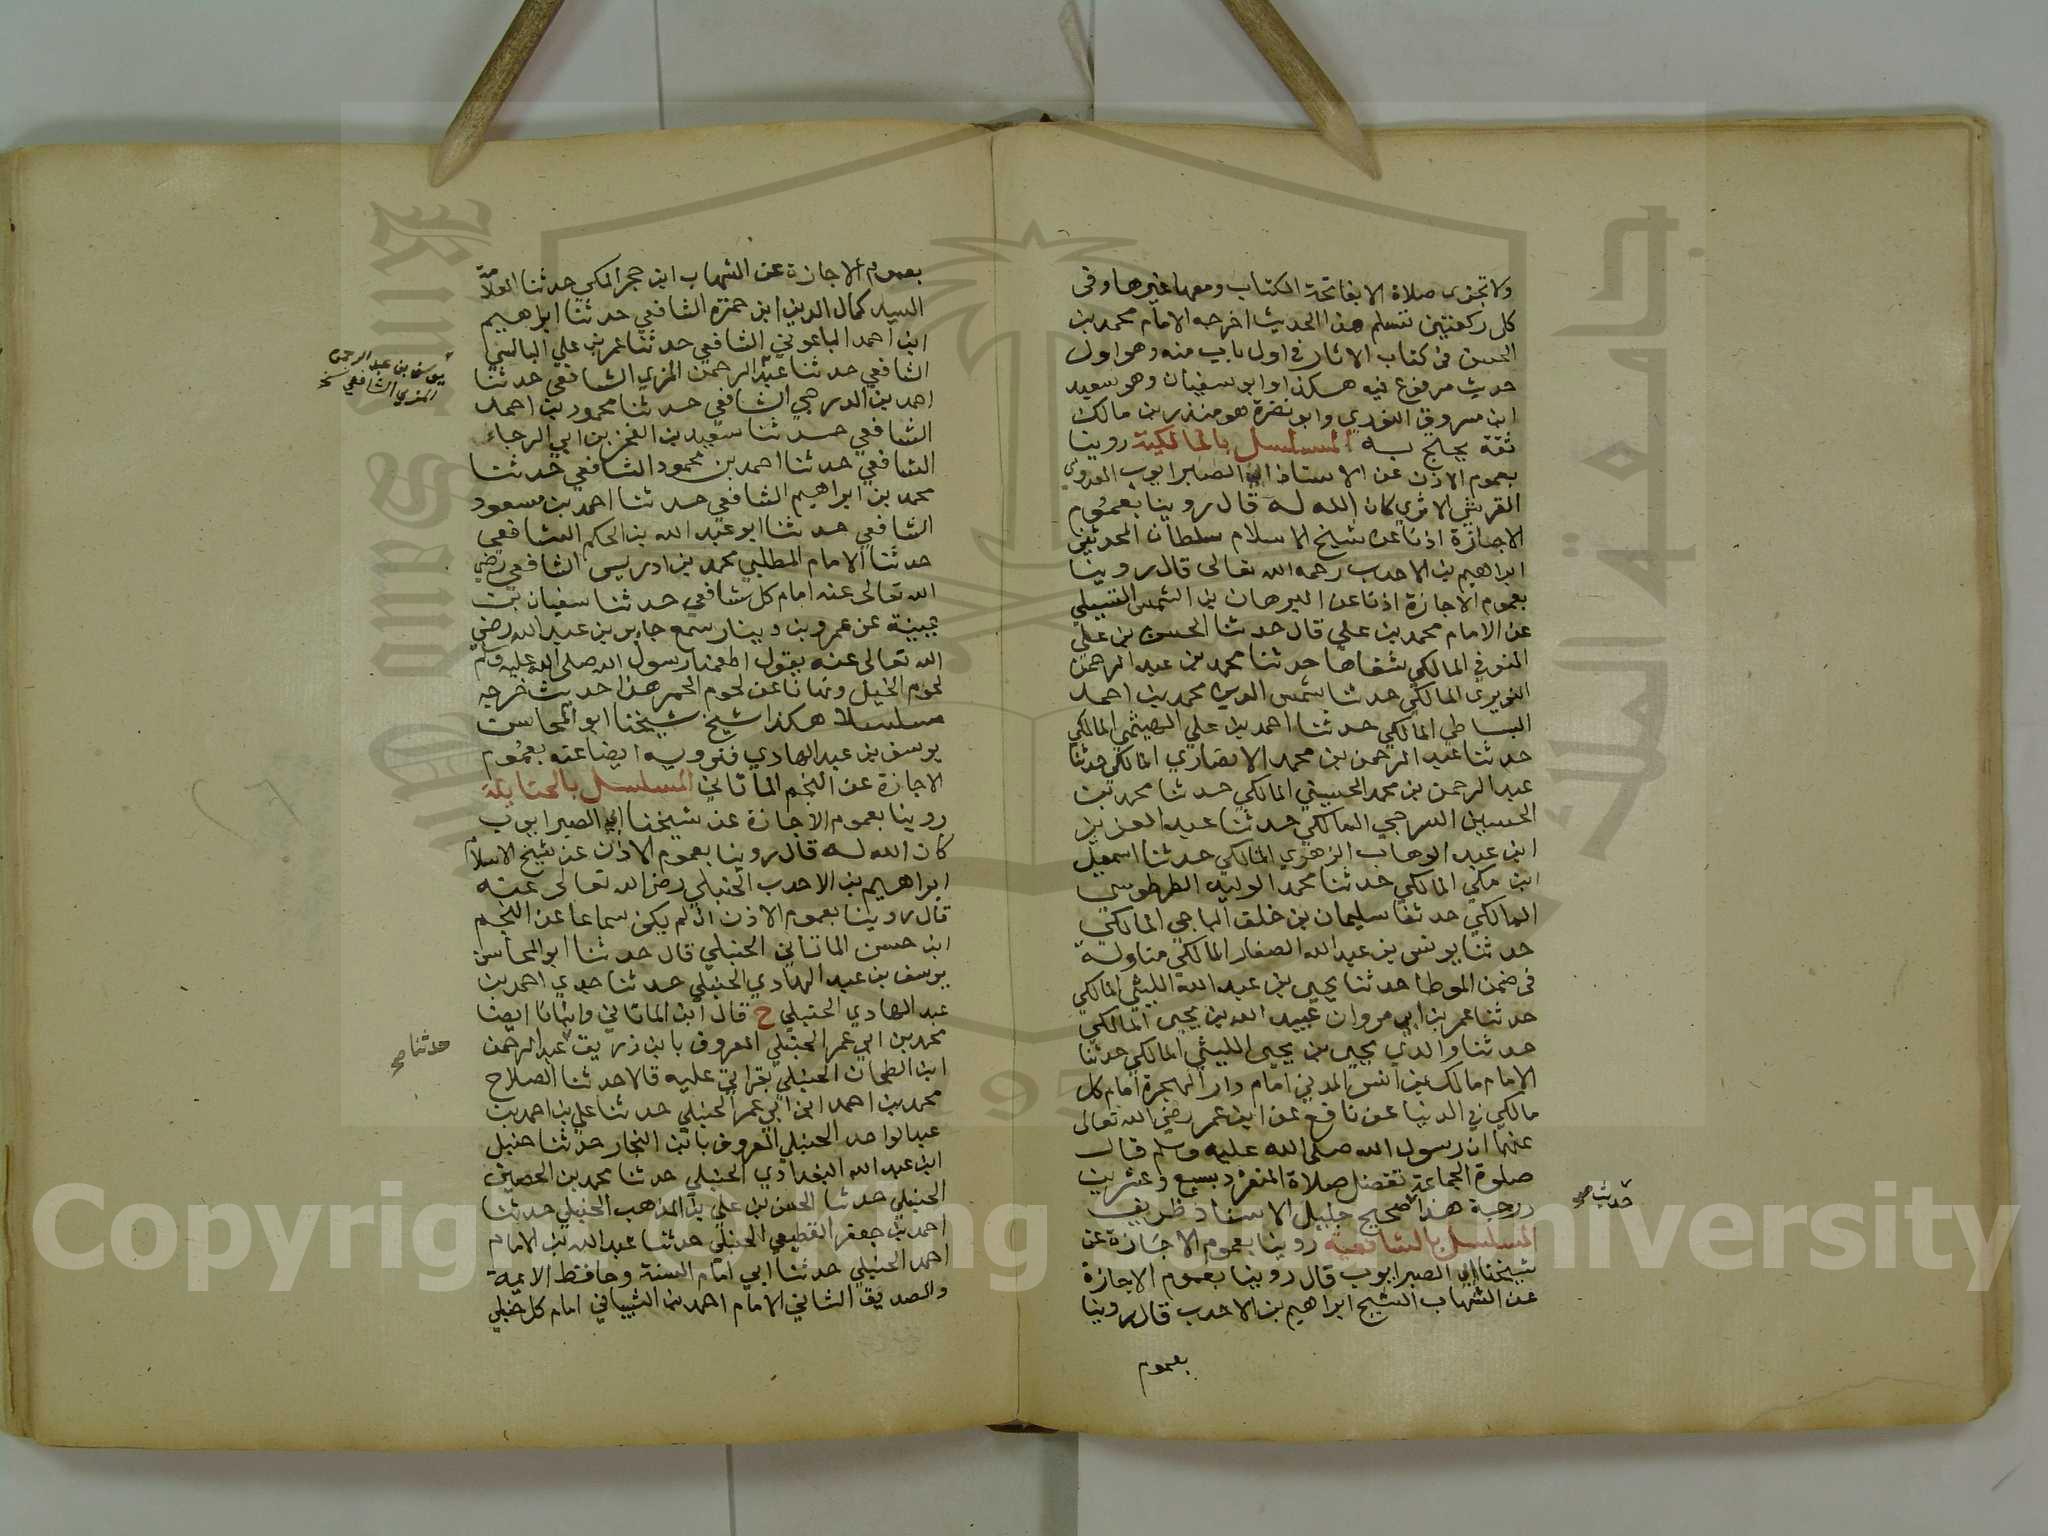 ولا تجزى صلاة الا بفاتحة الكتاب ومعها غيرها وفى
كل ركعتين تسلم هذا الحديث اخرجه الامام محمد بن
الحسن فى كتاب الاثار فى اول باب منه وهو اول
حديث مرفوع فيه هكذا وابو سفيان وهو سعيد
ابن مسروق الثوري وابو نضرة هو منذر بن مالك
ثقة يحتج به المسلسل بالمالكية روينا
بعموم الاذن عن الاستاذ ابي الصبر ايوب العدوي
القرشي الاثري كان الله له قال روينا بعموم
الاجازة اذنا عن شيخ الاسلام سلطان المحدثين
ابراهيم بن الاحدب رحمه الله تعالى قال روينا
بعموم الاجازة اذنا عن البرهان بن الشمس
عن الامام محمد بن علي قال حدثنا الحسن بن علي
المنوفي المالكي شفاها حدثنا محمد بن عبد الرحمن
النويري المالكي حدثنا شمس الدين محمد بن احمد
البساطي المالكي حدثنا احمد بن علي الهيثمي المالكي
حدثنا عبد الرحمن بن محمد الانصاري المالكي حدثنا
عبد الرحمن بن محمد الحسيني المالكي حدثنا محمد بن
الحسين السرجي المالكي حدثنا عبد العزيز
ابن عبد الوهاب الزهري المالكي حدثنا اسمعيل
ابن مكي المالكي حدثنا محمد الوليد الطرطوسي
المالكي حدثنا سليمان بن خلف الباجي المالكي
حدثنا يونس بن عبد الله الصفار المالكي مناولة
فى ضمن الموطا حدثنا يحيى بن عبد الله الليثي المالكي
حدثنا عمر بن ابي مروان عبيد الله بن يحيى المالكي
حدثنا والدي يحيى بن يحيى الليثي المالكي حدثنا
الامام مالك بن انس المدني امام دار الهجرة امام كل
مالكي في الدنيا عن نافع عن ابن عمر رضي الله تعالى
عنهما ان رسول الله صلى الله عليه وسلم قال
صلوة الجماعة تفضل صلاة المنفرد بسبع وعشرين
درجة هذا صحيح جليل الاسناد ظريف
حديث صح
المسلسل بالشافعية روينا بعموم الاجازة عن
شيخنا ابي الصبر ايوب قال روينا بعموم الاجازة
عن الشهاب الشيخ ابراهيم بن الاحدب قال روينا
بعموم
بعموم الاجازة عن الشهاب ابن حجر المكي حدثنا العلامة
السيد كمال الدين ابن حمزة الشافعي حدثنا ابراهيم
ابن احمد الباعوني الشافعي حدثنا عمر بن علي البالسي
الشافعي حدثنا عبد الرحمن المزي الشافعي حدثنا
يوسف بن عبد الرحمن
المزي الشافعي نسخ
احمد بن الدرجي الشافعي حدثنا محمود بن احمد
الشافعي حدثنا سعيد بن الفخر بن ابي الرجاء
الشافعي حدثنا احمد بن محمود الشافعي حدثنا
محمد بن ابراهيم الشافعي حدثنا احمد بن مسعود
الشافعي حدثنا ابو عبد الله بن الحكم الشافعي
حدثنا الامام المطلبي محمد بن ادريس الشافعي رضي
الله تعالى عنه امام كل شافعي حدثنا سفيان بن
عيينة عن عمرو بن دينار سمع جابر بن عبد الله رضي
الله تعالى عنه يقول اطعمنا رسول الله صلى الله عليه وسلم
لحوم الخيل ونهانا عن لحوم الحمر هذا حديث خرجه
مسلسلا هكذا شيخ شيخنا ابو المحاسن
يوسف بن عبد الهادي فنرويه ايضا عنه بعموم
الاجازة عن النجم الماتاني المسلسل بالحنابلة
روينا بعموم الاجازة عن شيخنا ابي الصبر ايوب
كان الله له قال روينا بعموم الاذن عن شيخ الاسلام
ابراهيم بن الاحدب الحنبلي رضي الله تعالى عنه
قال روينا بعموم الاذن ان لم يكن سماعا عن النجم
ابن حسن الماتاني الحنبلي قال حدثنا ابو المحاسن
يوسف بن عبد الهادي الحنبلي حدثنا جدي احمد بن
عبد الهادي الحنبلي ح قال ابن الماتاني وانبانا ايضا
محمد بن ابي عمر الحنبلي المعروف بابن زريق عبد الرحمن
حدثنا صح
ابن الطحان الحنبلي بقراتي عليه قالا حدثنا الصلاح
محمد بن احمد ابن ابي عمر الحنبلي حدثنا علي بن احمد بن
عبد الواحد الحنبلي المعروف بابن النجار حدثنا حنبل
ابن عبد الله البغدادي الحنبلي حدثنا محمد بن الحصين
الحنبلي حدثنا الحسن بن علي بن المذهب الحنبلي حدثنا
احمد بن جعفر القطيعي الحنبلي حدثنا عبد الله بن الامام
احمد الحنبلي حدثنا ابي امام السنة وحافظ الايمة
والصديق الثاني الامام احمد بن الشيباني امام كل حنبلي
جامعة الملك سعود
King Saud University
1957
Copyright © King Saud University